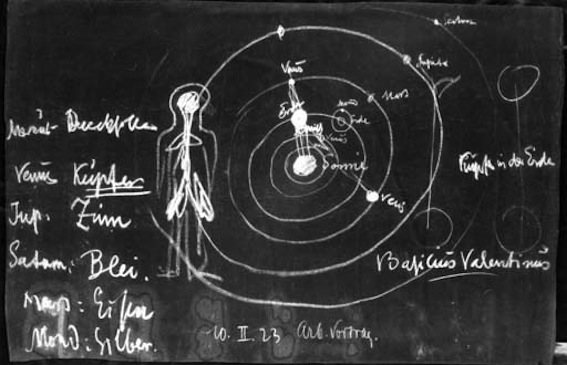 Saturn
Jupiter
Venus
Mars
Erde
Mond
Erde
Merkur - Quecksilber
Venus
Sonne
Kupfer in der Erde
Venus Kupfer
Venus
Jup: Zinn
Saturn: Blei.
Basilius Valentinus
Mars: Eisen
Mond: Silber.
10. II. 23 Arb. Vortrag.